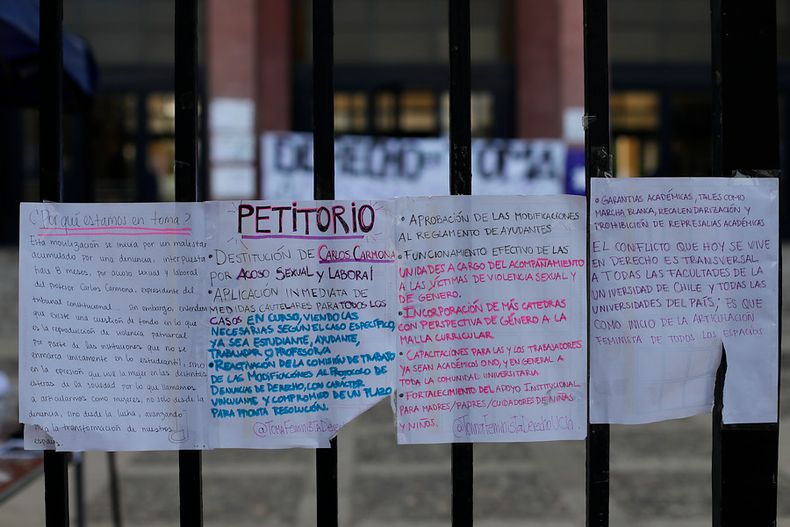 ¿Por qué estamos en toma?
Esta movilización se inicia por un malestar
acumulado por una denuncia, interpuesta
hace 8 meses, por acoso sexual y laboral
del profesor Carlos Carmona, expresidente del
tribunal constitucional... Sin embargo, entendemos
que existe una cuestión de fondo en lo que
es la reproducción de violencia patriarcal
por parte de las instituciones que no se
enmarca únicamente en lo estudiantil, sino
en la opresión que vive la mujer en las distintas
de la sociedad por lo que llamamos
a articularnos como mujeres, no solo desde la
denuncia, sino desde la lucha, avanzando
la transformación de nuestros
PETITORIO
• DESTITUCIÓN DE CARLOS CARMONA
POR ACOSO SEXUAL Y LABORAL
• APLICACIÓN INMEDIATA DE
MEDIDAS CAUTELARES PARA TODOS LOS
CASOS EN CURSO, VIENDO LAS
NECESARIAS SEGÚN EL CASO ESPECÍFICO,
YA SEA ESTUDIANTE, AYUDANTE,
TRABAJADOR O PROFESOR/A
• REACTIVACIÓN DE LA COMISIÓN DE TRABAJO
DE LAS MODIFICACIONES AL PROTOCOLO DE
DENUNCIAS DE DERECHO, CON CARÁCTER
VINCULANTE Y COMPROMISO DE UN PLAZO
PARA PRONTA RESOLUCIÓN.
@TOMAFEMINISTADE
• APROBACIÓN DE LAS MODIFICACIONES
AL REGLAMENTO DE AYUDANTES
• FUNCIONAMIENTO EFECTIVO DE LAS
UNIDADES A CARGO DEL ACOMPAÑAMIENTO
A LAS VÍCTIMAS DE VIOLENCIA SEXUAL Y
DE GÉNERO.
• INCORPORACIÓN DE MÁS CATEDRAS
CON PERSPECTIVA DE GÉNERO A LA
MALLA CURRICULAR
• CAPACITACIONES PARA LAS Y LOS TRABAJADORES
YA SEAN ACADÉMICOS O NO, Y EN GENERAL A
TODA LA COMUNIDAD UNIVERSITARIA
• FORTALECIMIENTO DEL APOYO INSTITUCIONAL
PARA MADRES/PADRES/CUIDADORES DE NIÑAS
Y NIÑOS.
@TOMAFEMINISTADERECHOUCH
• GARANTÍAS ACADÉMICAS, TALES COMO
MARCHA BLANCA, RECALENDARIZACIÓN Y
PROHIBICIÓN DE REPRESALIAS ACADÉMICAS
EL CONFLICTO QUE HOY SE VIVE
EN DERECHO ES TRANSVERSAL
A TODAS LAS FACULTADES DE LA
UNIVERSIDAD DE CHILE Y TODAS LAS
UNIVERSIDADES DEL PAÍS, ES QUE
COMO INICIO DE LA ARTICULACIÓN
FEMINISTA DE TODOS LOS ESPACIOS
DERECHO EN TOMA